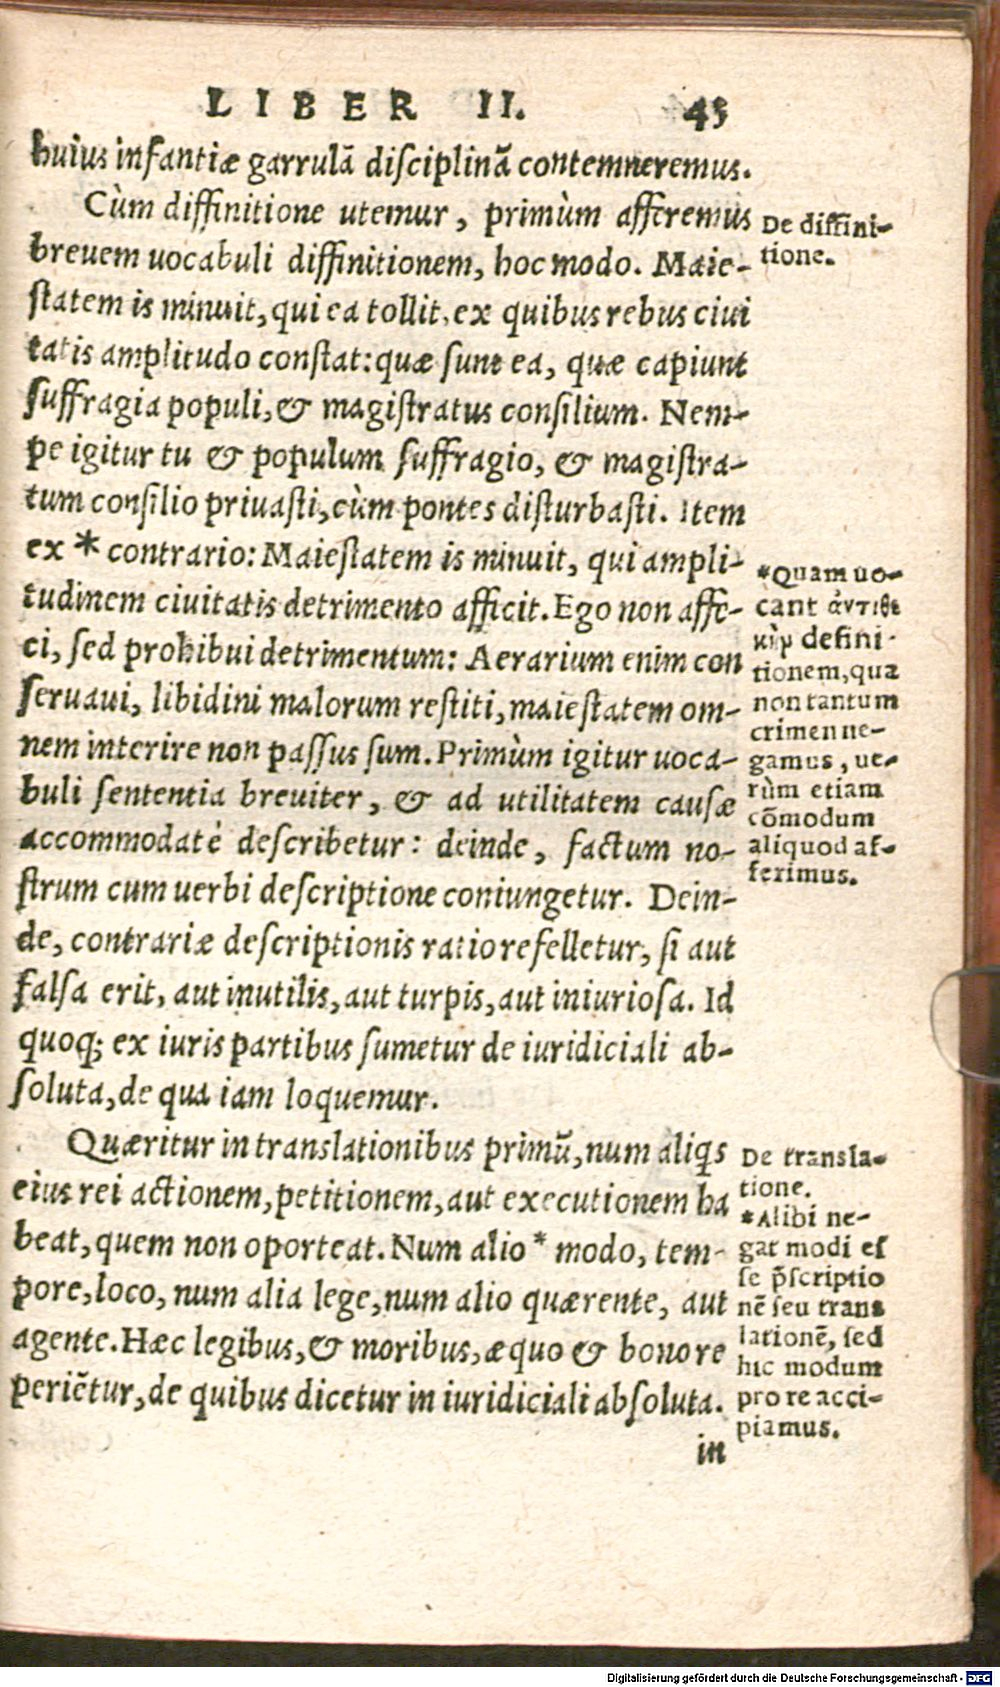 LIBER II. 43
huius infantiæ garrulā disciplinā contemneremus.
Cùm diffinitione utemur, primùm afferemus
breuem uocabuli diffinitionem, hoc modo. Maie-
statem is minuit, qui ea tollit, ex quibus rebus ciui
tatis amplitudo constat: quæ sunt ea, quæ capiunt
suffragia populi, & magistratus consilium. Nem-
pe igitur tu & populum suffragio, & magistra-
tum consilio priuasti, cùm pontes disturbasti. Item
ex * contrario: Maiestatem is minuit, qui ampli-
tudinem ciuitatis detrimento afficit. Ego non affe-
ci, sed prohibui detrimentum: Aerarium enim con
seruaui, libidini malorum restiti, maiestatem om-
nem interire non passus sum. Primùm igitur uoca-
buli sententia breuiter, & ad utilitatem causæ
accommodatè describetur: deinde, factum no-
strum cum uerbi descriptione coniungetur. Dein-
de, contrariæ descriptionis ratio refelletur, si aut
falsa erit, aut inutilis, aut turpis, aut iniuriosa. Id
quoq; ex iuris partibus sumetur de iuridiciali ab-
soluta, de qua iam loquemur.
Quæritur in translationibus primū, num aliqs
eius rei actionem, petitionem, aut executionem ha
beat, quem non oporteat. Num alio * modo, tem-
pore, loco, num alia lege, num alio quærente, aut
agente. Hæc legibus, & moribus, æquo & bono re
periētur, de quibus dicetur in iuridiciali absoluta.
in
De diffini-
tione.
*Quam uo-
cant ἀντιθε
κὴν defini-
tionem, qua
non tantum
crimen ne-
gamus, ue-
rùm etiam
cōmodum
aliquod af-
ferimus.
De transla-
tione.
*Alibi ne-
gat modi es
se p̄scriptio
nē seu trans
lationē, sed
hic modum
pro re acci-
piamus.
Digitalisierung gefördert durch die Deutsche Forschungsgemeinschaft - DFG